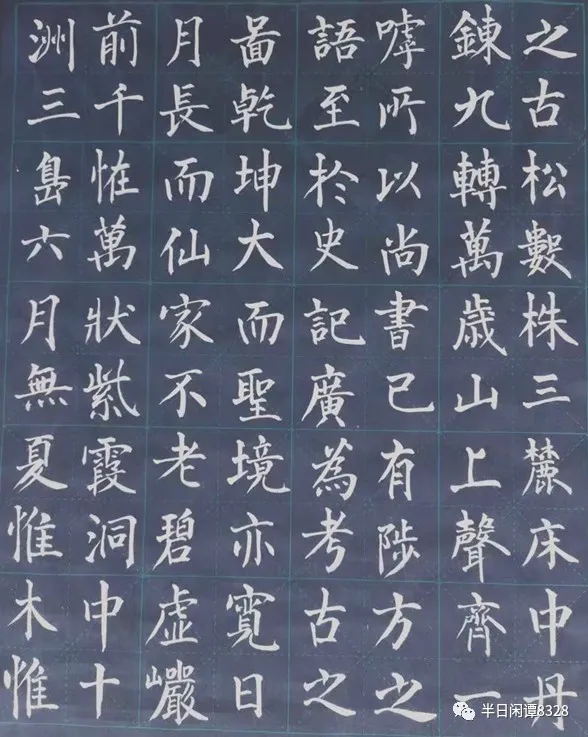 之古松數株三麓床中丹
錬九轉萬歳山上聲齊一
嘑所以尚書已有陟方之
語至於史記廣為考古之
啚乾坤大而聖境亦寛日
月長而仙家不老碧虚巖
前千恠萬狀紫霞洞中十
洲三島六月無夏惟木惟
半日闲谭8328